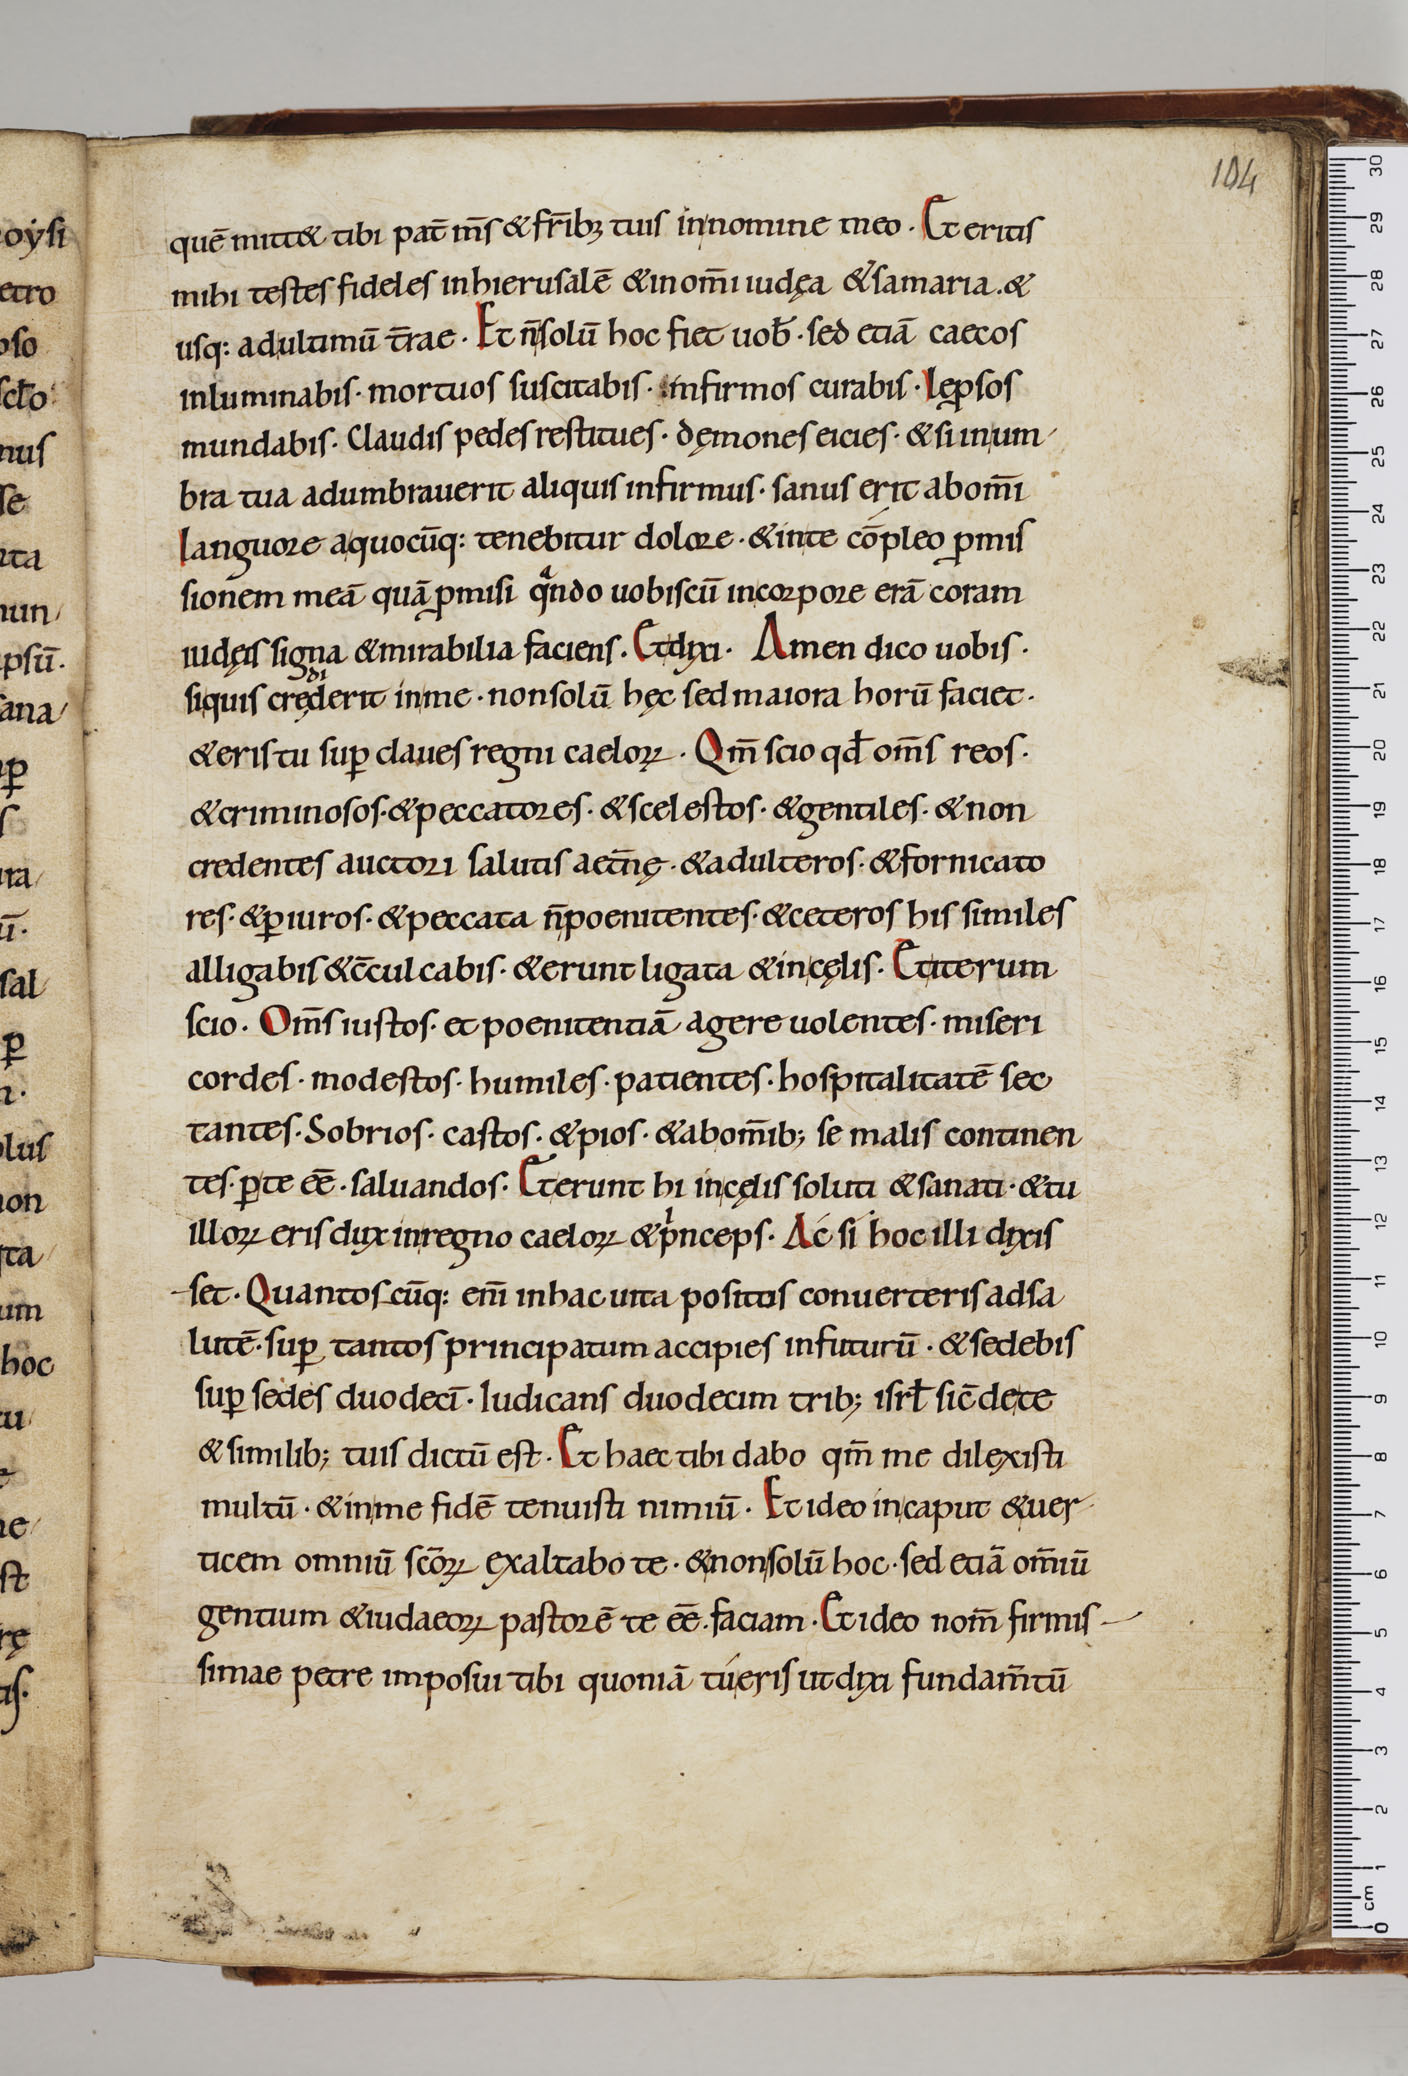 104
quē mitt& tibi pat̄ m̄s & fr̄ibꝫ tuis in nomine meo. Et eritis
mihi testes fideles in hierusalē & in om̄i iudęa & samaria. &
usq: ad ultimū t̄rae. Et n̄ solū hoc fiet uob̄. sed etiā caecos
inluminabis. mortuos suscitabis. infirmos curabis. Lępsos
mundabis. Claudis pedes restitues. dęmones eicies. & si in um
bra tua adumbrauerit aliquis infirmus. sanus erit ab om̄i
languore a quocūq: tenebitur dolore. & in te cōpleo ꝓmis
sionem meā quā ꝓmisi qͣndo uobiscū in corpore erā coram
iudęis signa & mirabilia faciens. Et dixi. Amen dico uobis.
siquis credιderit in me. non solū hęc sed maiora horū faciet.
& eris tu suꝑ claues regni caeloꝝ. Qm̄ scio qđ om̄s reos.
& criminosos. & peccatores. & scelestos. & gentiles. & non
credentes auctori salutis aet̄nę. & adulteros. & fornicato
res. & ꝑiuros. & peccata n̄ poenitentes. & ceteros his similes
alligabis & c̄culcabis. & erunt ligata & in cęlis. Et iterum
scio. Om̄s iustos. et poenitentiā agere uolentes. miseri
cordes. modestos. humiles. patientes. hospitalitatē sec
tantes. Sobrios. castos. & pios. & ab om̄ib; se malis continen
tes. ꝑ te eē. saluandos. Et erunt hi in cęlis soluti & sanati. & tu
illoꝝ eris dux in regno caeloꝝ & pͥnceps. Ac si hoc illi dixis
set. Quantoscūq: eni̅ in hac uita positus conuerteris ad sa
lutē. suꝑ tantos principatum accipies in futurū. & sedebis
suꝑ sedes duodecī. Iudicans duodecim trib; isrł sic̄ de te
& similib; tuis dictū est. Et haec tibi dabo qm̄ me dilexisti
multū. & in me fidē tenuisti nimiū. Et ideo in caput & uer
ticem omniū scōꝝ exaltabo te. & non solū hoc. sed etiā om̄iū
gentium & iudaeoꝝ pastorē te eē. faciam. Et ideo nom̄ firmis
simae petre imposui tibi quoniā tu eris ut dixi fundam̄tū